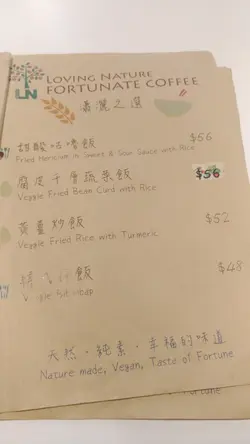 LOVING NATURE
FORTUNATE COFFEE
LN
甜酸咕嚕飯 $56
Fried Hericium in Sweet & Sour Sauce with Rice
腐皮千層蔬菜飯 $56
Veggie Fried Bean Curd with Rice
黃薑炒飯 $52
Veggie Fried Rice with Turmeric
飯 $48
天然·純素·幸福的味道
Nature made, Vegan, Taste of Fortune
Fortune